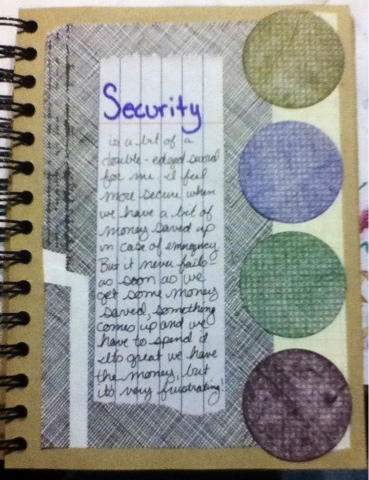 Security
is a bit of a
double-edged sword
for me. I feel
more secure when
we have a bit of
money saved up
in case of emergency
But it never fails -
as soon as we
get some money
saved, something
comes up and we
have to spend it
its great we have
the money, but
its very frustrating!